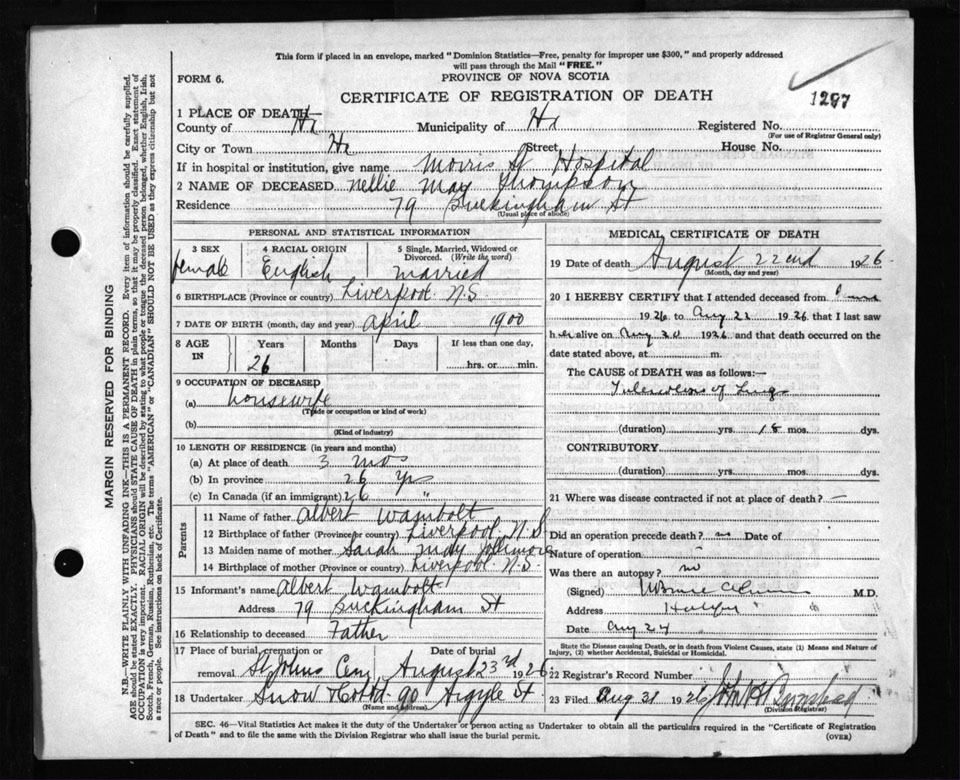 This form if placed in an envelope, marked "Dominion Statistics—Free, penalty for improper use $300," and properly addressed
will pass through the Mail "FREE."
FORM 6.
PROVINCE OF NOVA SCOTIA
CERTIFICATE OF REGISTRATION OF DEATH
1297
1 PLACE OF DEATH—
County of Hx Municipality of Hx Registered No.
(For use of Registrar General only)
City or Town Hx Street House No.
If in hospital or institution, give name Morris St Hospital
2 NAME OF DECEASED Nellie May Thompson
Residence 79 Buckingham St
(Usual place of abode)
PERSONAL AND STATISTICAL INFORMATION
3 SEX 4 RACIAL ORIGIN 5 Single, Married, Widowed or
Divorced. (Write the word)
female English married
6 BIRTHPLACE (Province or country) Liverpool N.S.
7 DATE OF BIRTH (month, day and year) April 1900
8 AGE IN Years Months Days If less than one day,
26 hrs. or min.
9 OCCUPATION OF DECEASED
(a) housewife
(Trade or occupation or kind of work)
(b)
(Kind of industry)
10 LENGTH OF RESIDENCE (in years and months)
(a) At place of death 3 mos
(b) In province 26 Yrs
(c) In Canada (if an immigrant) 26 "
Parents
11 Name of father Albert Wambolt
12 Birthplace of father (Province or country) Liverpool N.S
13 Maiden name of mother Sarah Jollimore
14 Birthplace of mother (Province or country) Liverpool N.S.
15 Informant's name Albert Wambolt
Address 79 Buckingham St
16 Relationship to deceased Father
17 Place of burial, cremation or removal Date of burial
St Johns Cem August 23rd 1926
18 Undertaker Snow & Co Ltd 90 Argyle St
(Name and address)
MEDICAL CERTIFICATE OF DEATH
19 Date of death August 22nd 1926
(Month, day and year)
20 I HEREBY CERTIFY that I attended deceased from
1926 to Aug 22 1926 that I last saw
her alive on Aug 20 1926 and that death occurred on the
date stated above, at m.
The CAUSE OF DEATH was as follows:—
Tuberculosis of Lungs
(duration) yrs. 18 mos. dys.
CONTRIBUTORY
(duration) yrs. mos. dys.
21 Where was disease contracted if not at place of death? —
Did an operation precede death? no Date of
Nature of operation
Was there an autopsy? no
(Signed) M.D.
Address Halifax
Date Aug 24
State the Disease causing Death, or in death from Violent Causes, state (1) Means and Nature of
Injury, (2) whether Accidental, Suicidal or Homicidal.
22 Registrar's Record Number
23 Filed Aug 31 1926 John
(Division Registrar)
SEC. 46—Vital Statistics Act makes it the duty of the Undertaker or person acting as Undertaker to obtain all the particulars required in the "Certificate of Registration
of Death" and to file the same with the Division Registrar who shall issue the burial permit.
(OVER)
MARGIN RESERVED FOR BINDING
N.B.—WRITE PLAINLY, WITH UNFADING INK—THIS IS A PERMANENT RECORD. Every item of information should be carefully supplied.
AGE should be stated EXACTLY. PHYSICIANS should STATE CAUSE OF DEATH in plain terms, so that it may be properly classified. Exact statement of
OCCUPATION is very important. RACIAL ORIGIN will be described by stating to what people or tongue the deceased person belonged, whether English, Irish,
Scotch, French, German, Russian, Ruthenian, etc. The terms "AMERICAN" or "CANADIAN" SHOULD NOT BE USED as they express citizenship but not
a race or people. See instructions on back of Certificate.